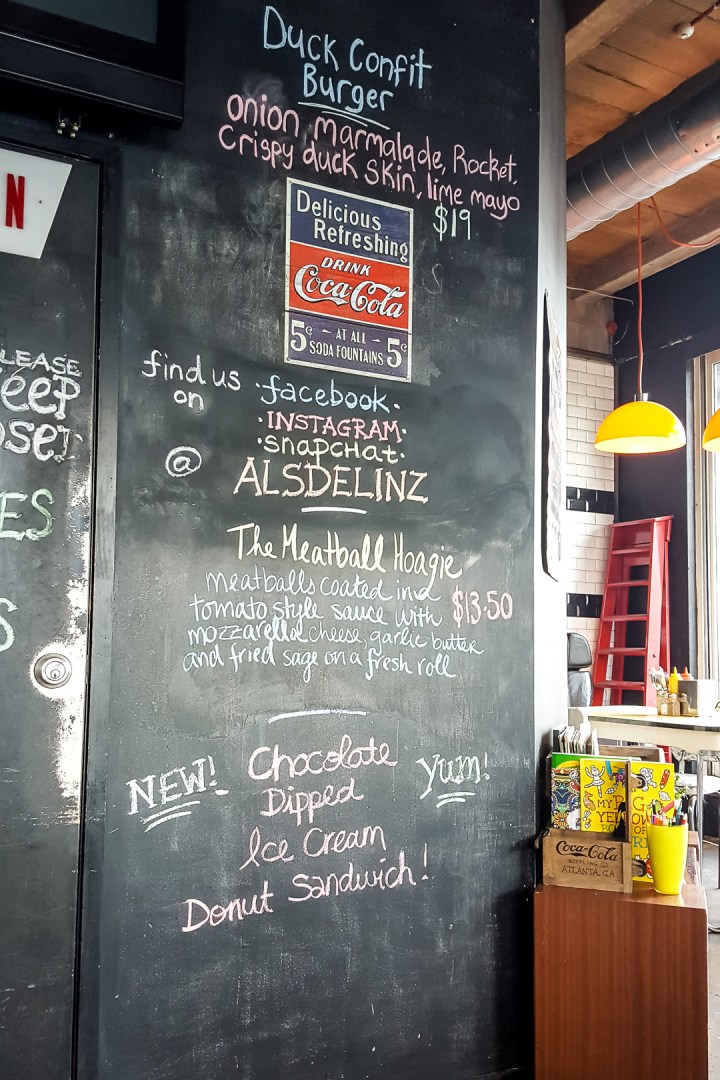 Duck Confit
Burger
onion marmalade, Rocket,
Crispy duck skin, lime mayo
$19
Delicious
Refreshing
DRINK
Coca-Cola
5¢ - AT ALL - 5¢
SODA FOUNTAINS
find us
on
·facebook·
·INSTAGRAM·
·snapchat·
@
ALSDELINZ
The Meatball Hoagie
meatballs coated in a
tomato style sauce with
mozzarella cheese, garlic butter
and fried sage on a fresh roll
$13.50
NEW!
Chocolate
Dipped
Ice Cream
Donut Sandwich!
Yum!
N
Coca-Cola
BOTTLING CO
ATLANTA, GA
MY